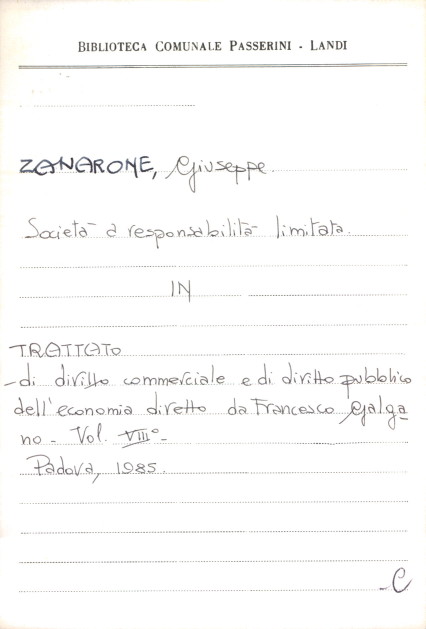 BIBLIOTECA COMUNALE PASSERINI - LANDI
ZANARONE, Giuseppe.
Società a responsabilità limitata.
IN
TRATTATO
- di diritto commerciale e di diritto pubblico
dell'economia diretto da Francesco Galga
no - Vol. VIII° -
Padova, 1985.
- C